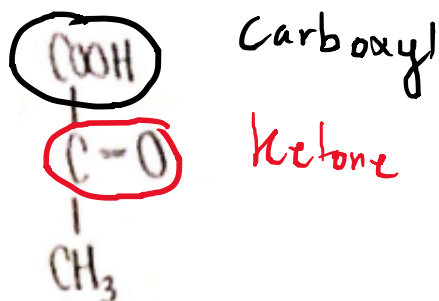 COOH Carboxyl
C=O Ketone
CH₃